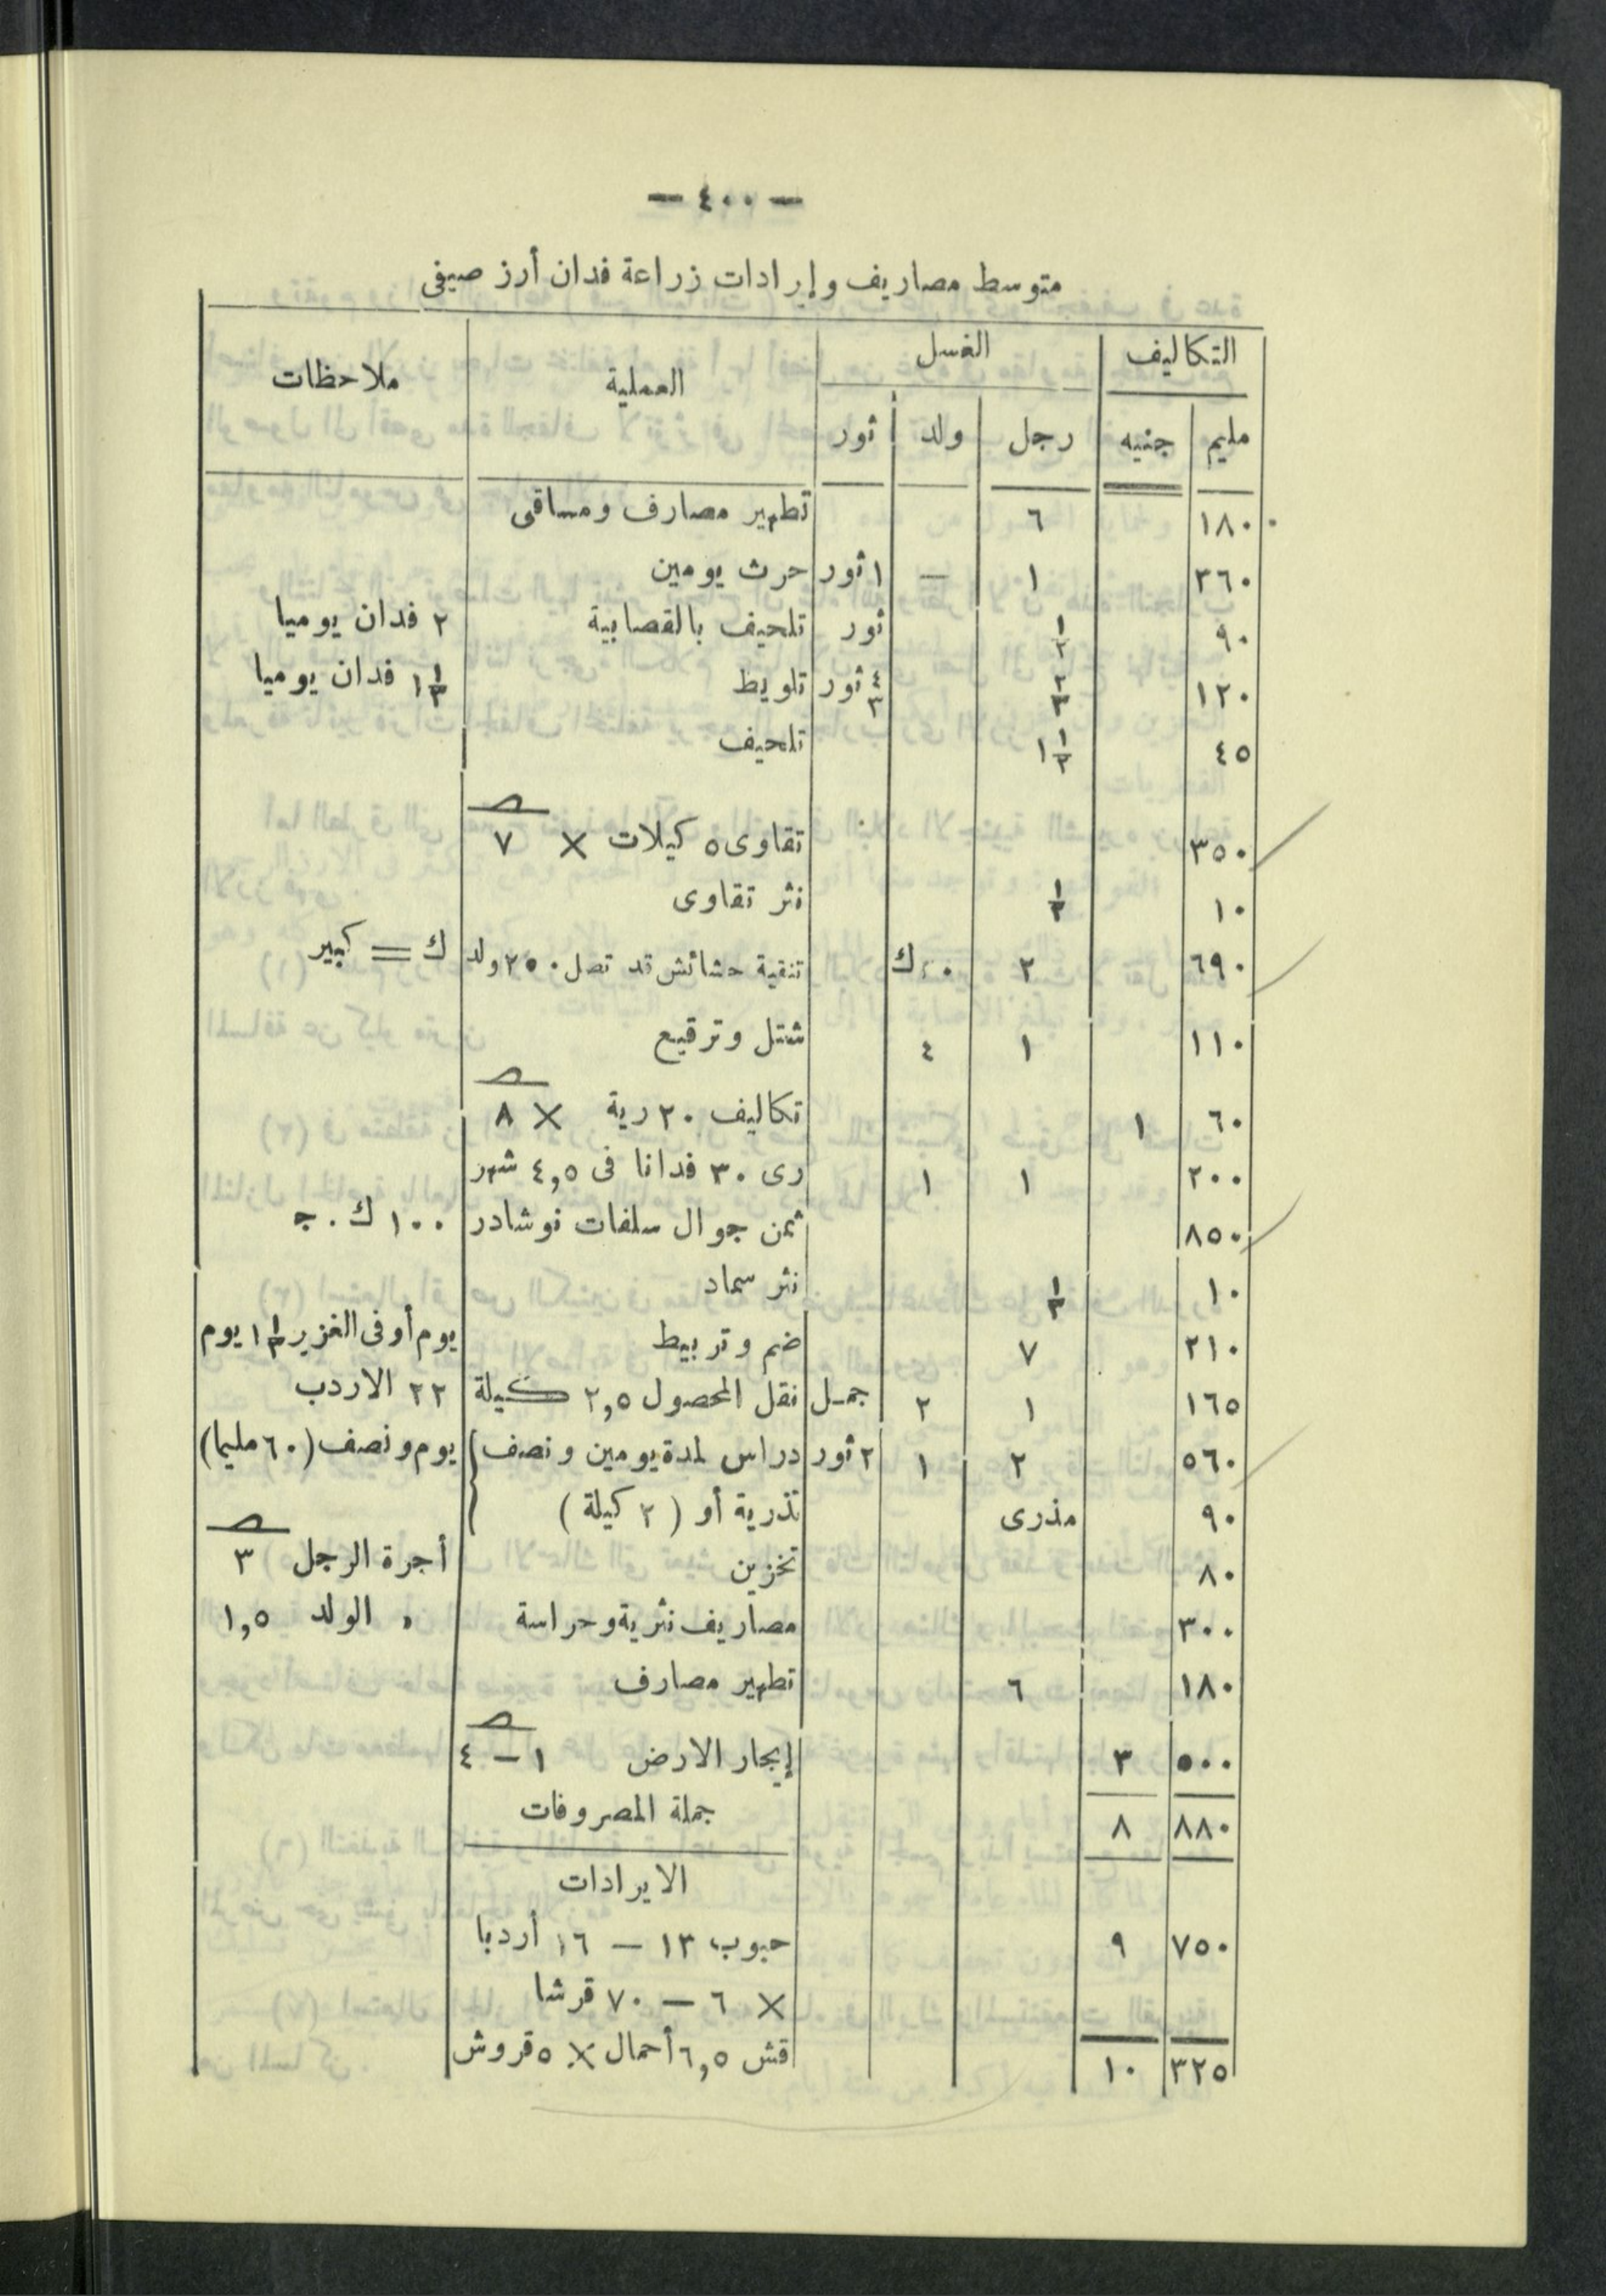 — ٤٠٠ —
متوسط مصاريف وإيرادات زراعة فدان أرز صيفى
التكاليف الغسل العملية ملاحظات
مليم جنيه رجل ولد ثور
١٨٠ ٦ تطهير مصارف ومساقى
٣٦٠ ١ — ١ ثور حرث يومين
٩٠ ١/٢ ثور تلحيف بالقصابية ٢ فدان يوميا
١٢٠ ٢/٣ ٤/٣ ثور تلويط ١ ١/٢ فدان يوميا
٤٥ ١ ١/٢ تلحيف
٣٥٠ تقاوى ٥ كيلات × ٧
١٠ ١/٣ نثر تقاوى
٦٩٠ ٢ ٤٠ ك تنقية حشائش قد تصل ٢٥٠ ولد ك = كبير
١١٠ ١ ٤ شتل وترقيع
٦٠ ١ تكاليف ٢٠ رية × ٨
٢٠٠ ١ ١ رى ٣٠ فدانا فى ٤,٥ شهر
٨٥٠ ثمن جوال سلفات نوشادر ١٠٠ ك . ج
١٠ ١/٣ نثر سماد
٢١٠ ٧ ضم وتربيط يوم أو فى الغزير ١ ١/٢ يوم
١٦٥ ١ ٢ جمل نقل المحصول ٢,٥ كيلة ٢٢ الاردب
٥٦٠ ٢ ١ ٢ ثور دراس لمدة يومين ونصف يوم ونصف (٦٠ مليما)
٩٠ مذرى تذرية أو ( ٢ كيلة )
٨٠ تخزين أجرة الرجل ٣
٣٠٠ مصاريف نثرية وحراسة » الولد ١,٥
١٨٠ ٦ تطهير مصارف
٥٠٠ ٣ إيجار الارض ١ — ٤
٨٨٠ ٨ جملة المصروفات
الايرادات
٧٥٠ ٩ حبوب ١٣ — ١٦ أردبا
× ٦ — ٧٠ قرشا
٣٢٥ ١٠ قش ٦,٥ أحمال × ٥ قروش